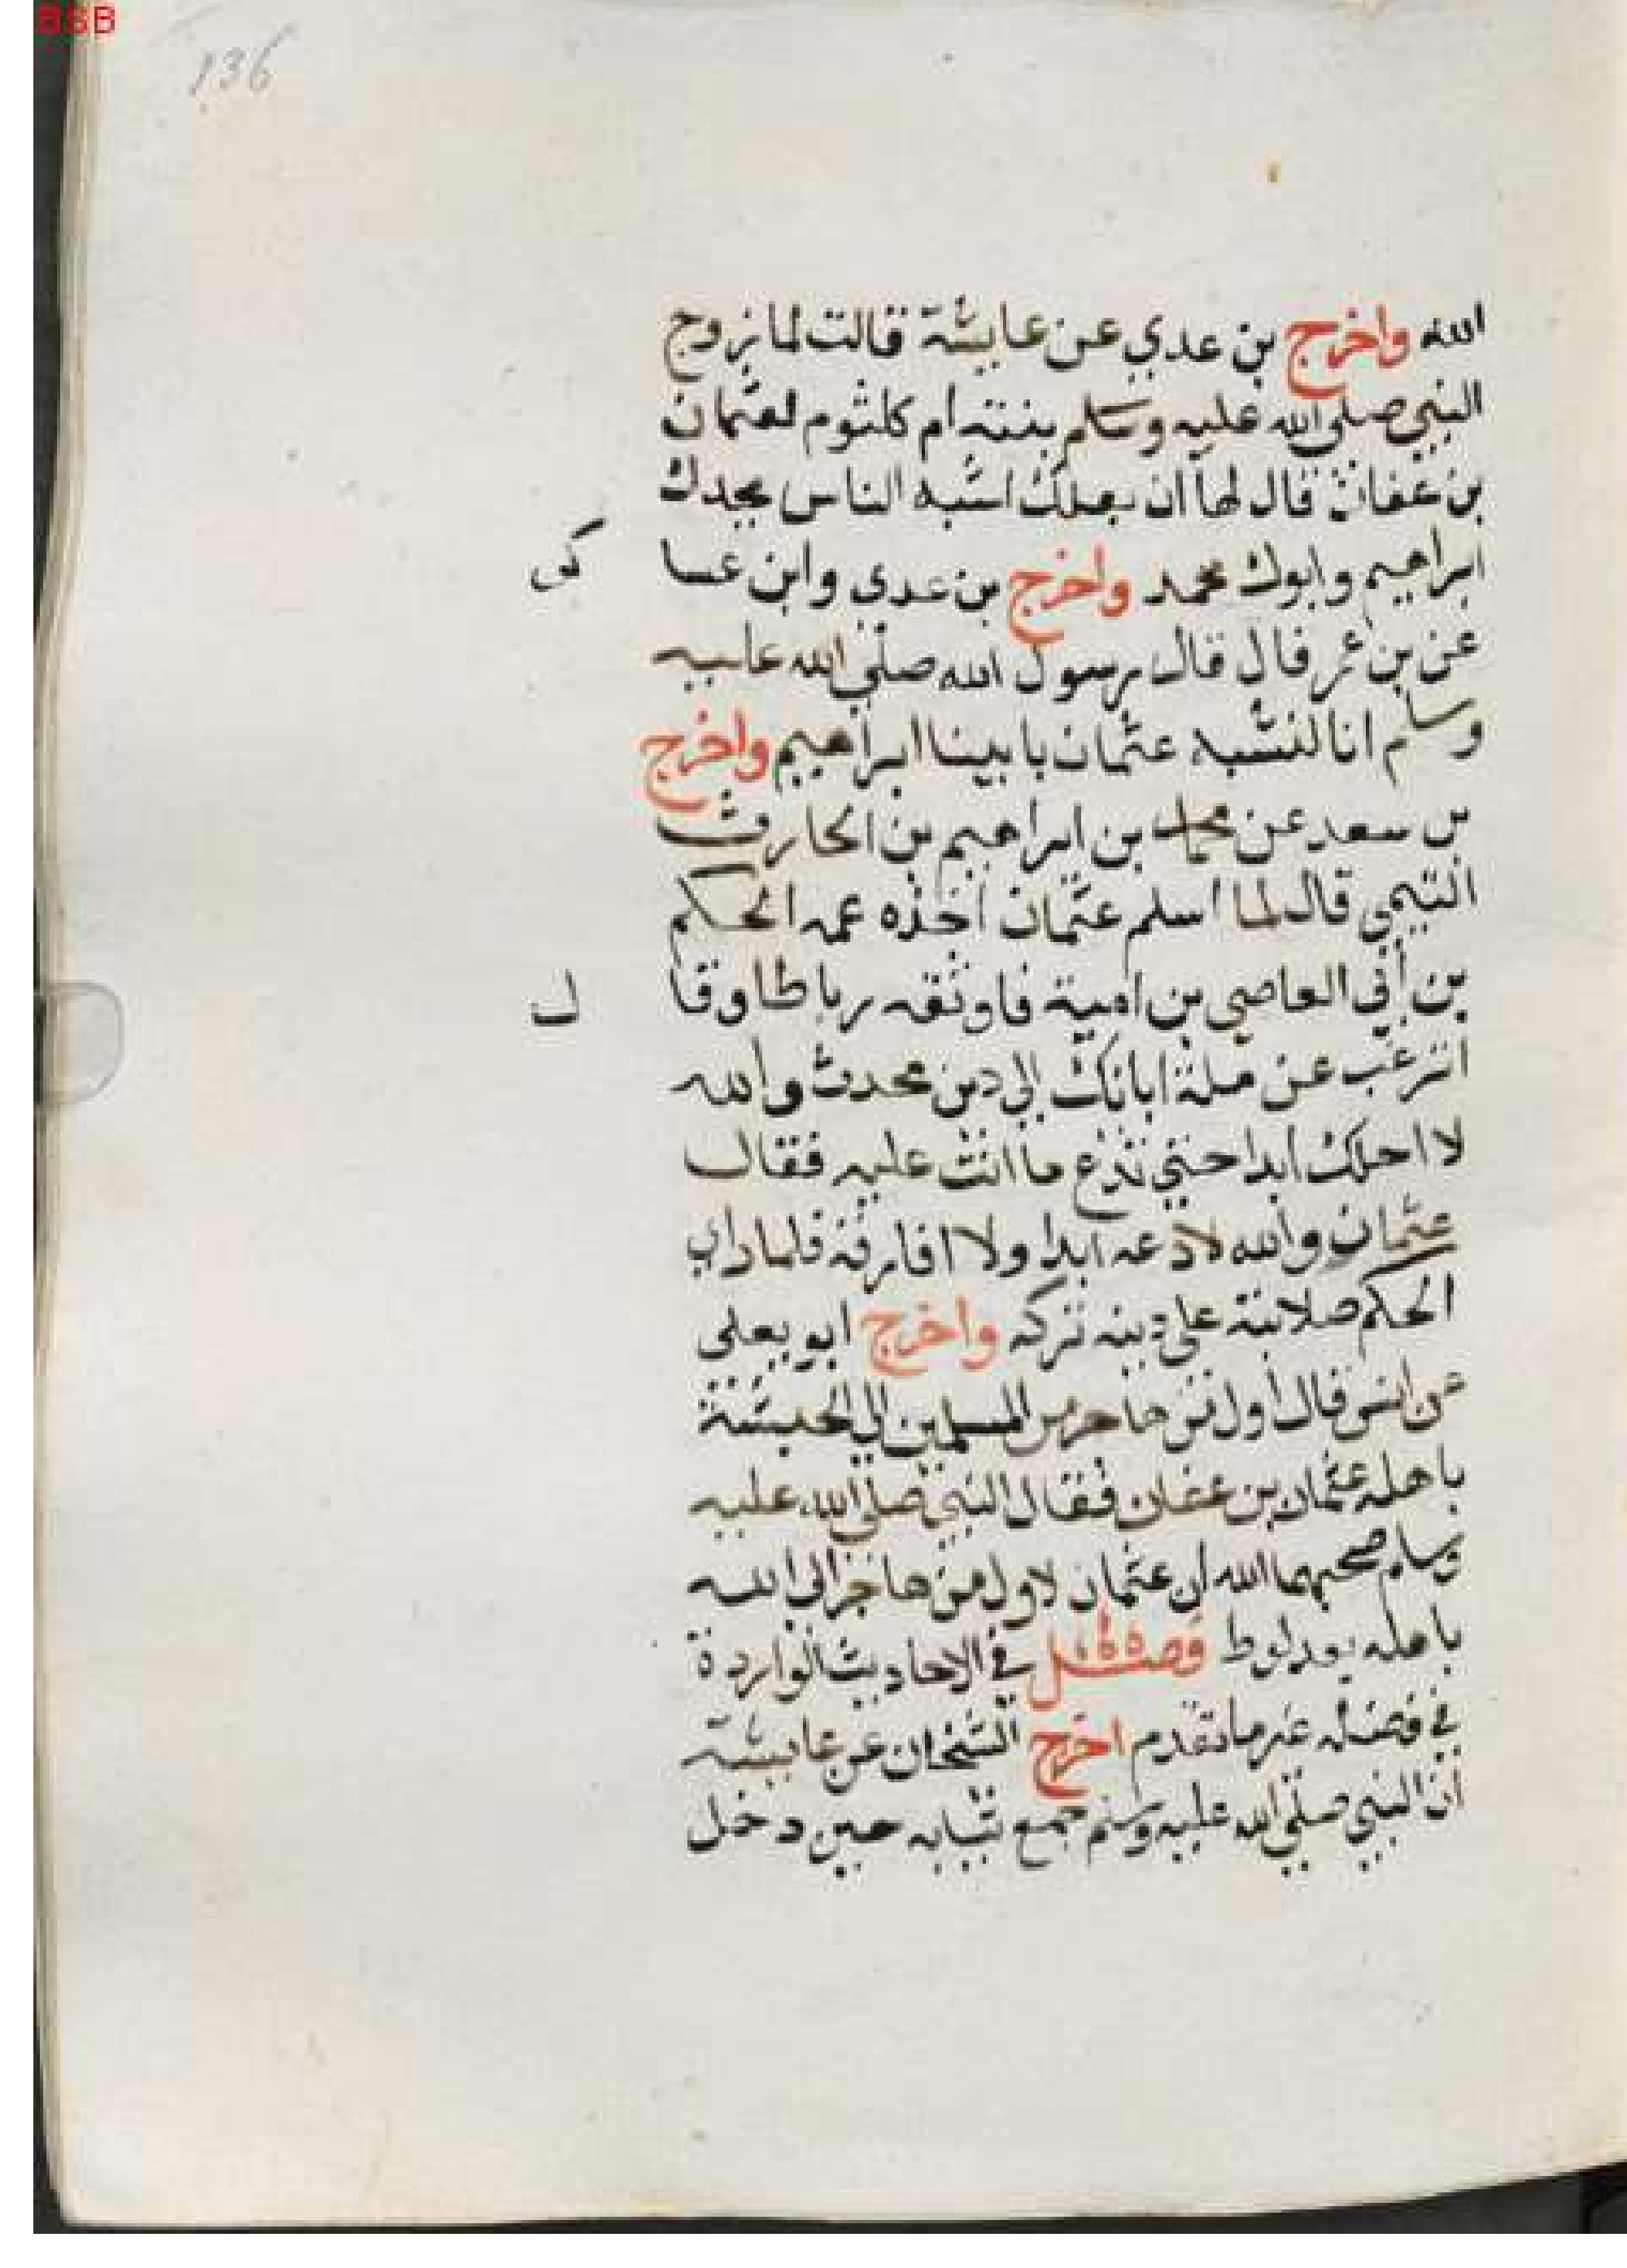 BSB
136
الله واخرج بن عدي عن عايشة قالت لما زوج
النبي صلى الله عليه وسلم بنته ام كلثوم لعثمان
بن عفان قال لها ان بعلك اشبه الناس بجدك
ابراهيم وابوك محمد واخرج بن عدي وابن عسا كر
عن بن عمر قال قال رسول الله صلى الله عليه
وسلم انا لنشبه عثمان بابينا ابراهيم واخرج
بن سعد عن محمد بن ابراهيم بن الحارث
التيمي قال لما اسلم عثمان اخذه عمه الحكم
بن أبي العاصي بن امية فاوثقه رباطا وقا ل
اترغب عن ملة ابائك الي دين محدث والله
لا احلك ابدا حتي تدع ما انت عليه فقال
عثمان والله لادعه ابدا ولا افارقه فلما راي
الحكم صلابته علي دينه تركه واخرج ابو يعلي
عن انس قال اول من هاجر من المسلمين الي الحبشة
باهله عثمان بن عفان فقال النبي صلى الله عليه
وسلم صحبهما الله ان عثمان لاول من هاجر الي الله
باهله بعد لوط فصل في الاحاديث الواردة
في فضله غير ما تقدم اخرج الشيخان عن عايشة
ان النبي صلى الله عليه وسلم جمع ثيابه حين دخل